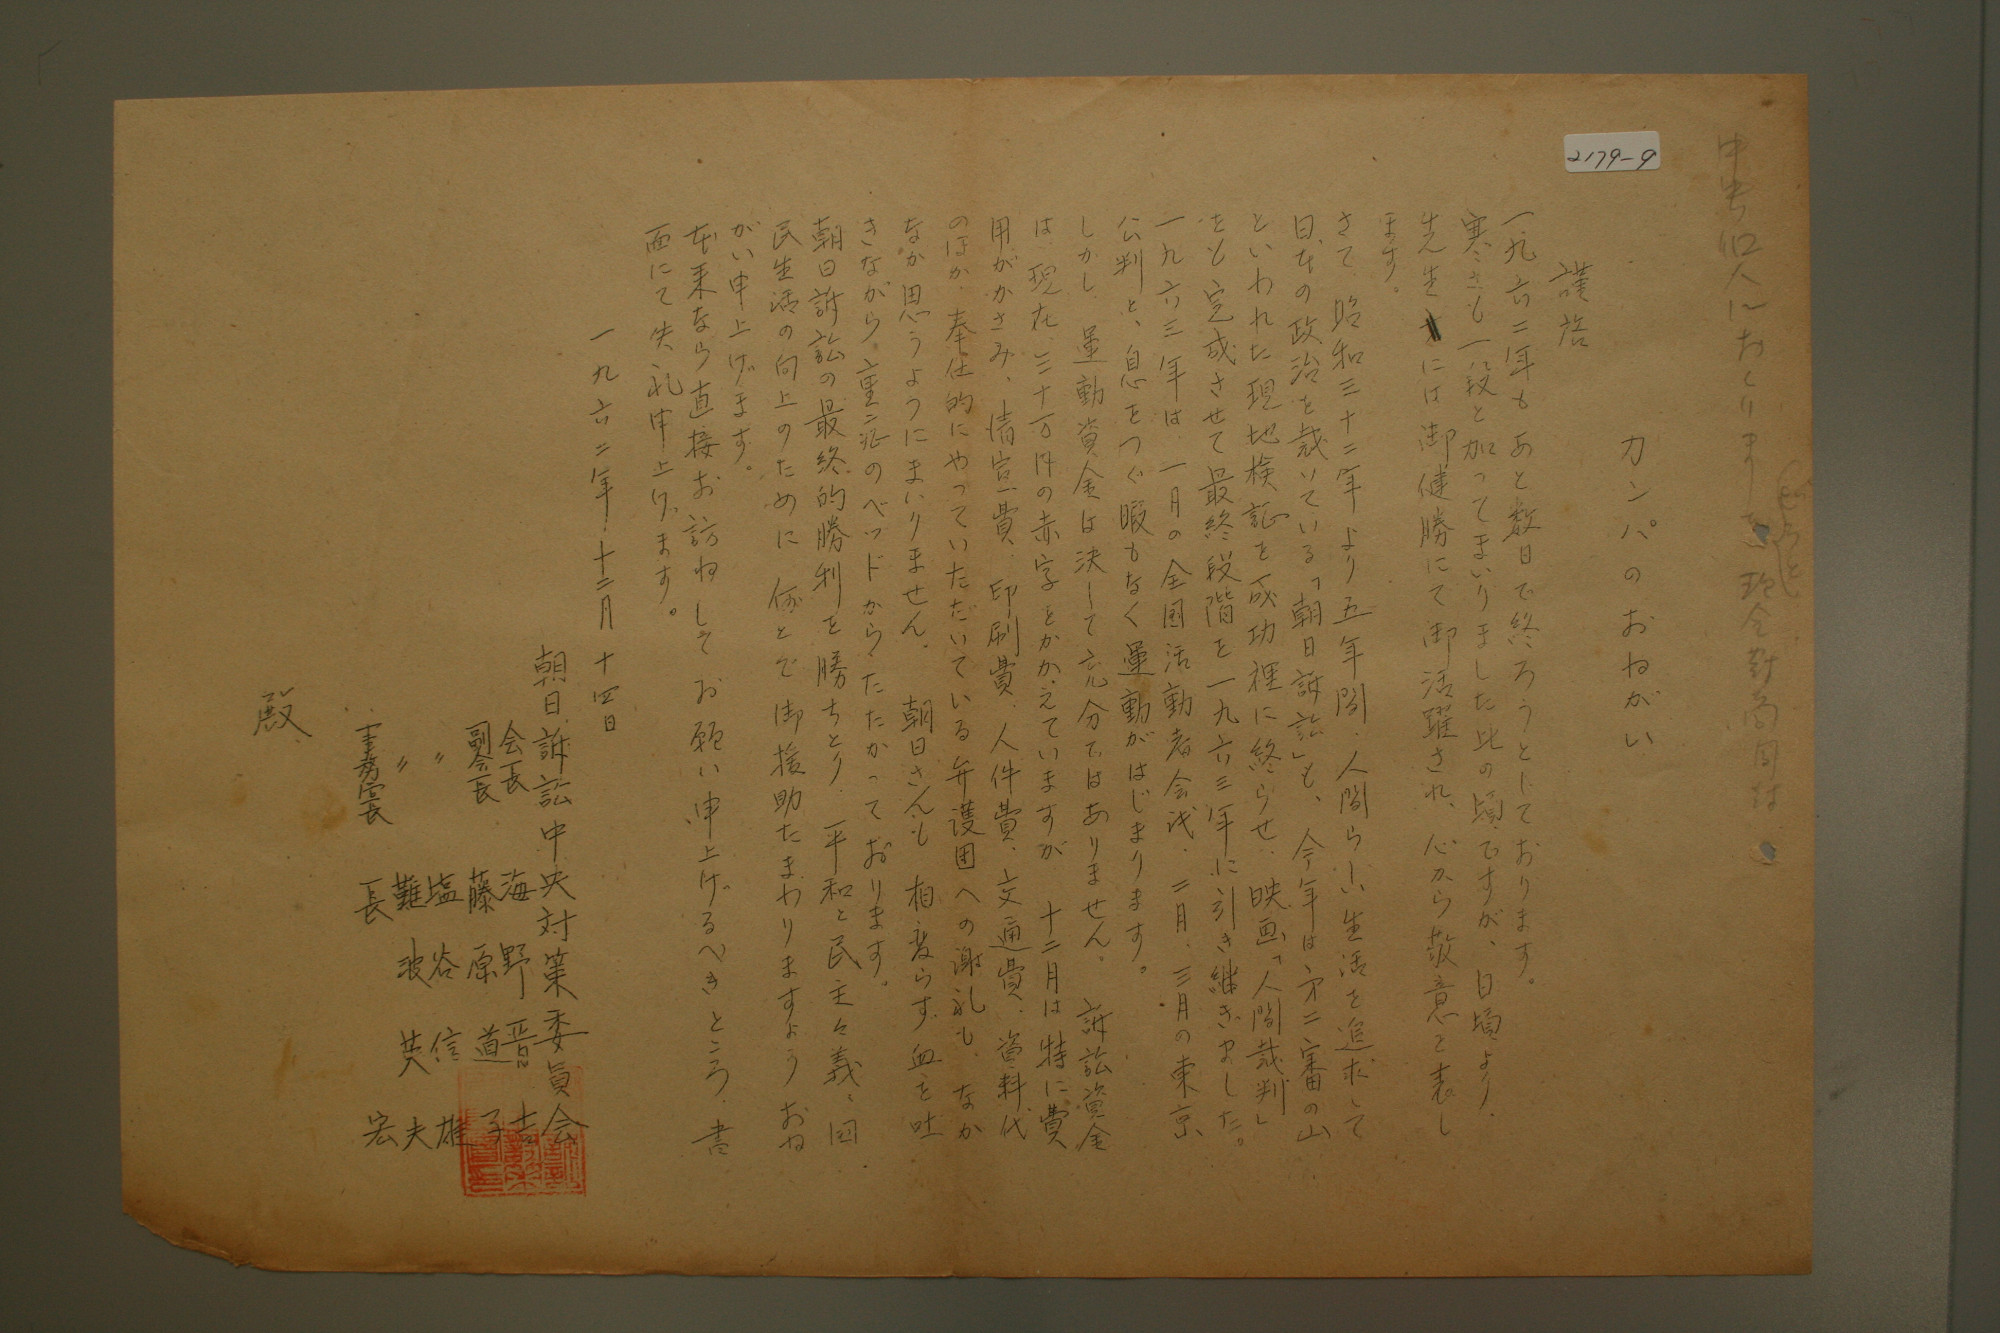 2179-9
カンパのおねがい
謹啓
一九六二年も あと数日で終ろうとしております。
寒さも一段と加ってまいりました此の頃ですが、日頃より、
先生には御健勝にて御活躍され、心から敬意を表し
ます。
さて、昭和三十二年より五年間、人間らしい生活を追求して
日本の政治を裁いている「朝日訴訟」も、今年は第二審の山
といわれた現地検証を成功裡に終らせ、映画「人間裁判」
をも完成させて最終段階を一九六三年に引き継ぎました。
一九六三年は、一月の全国活動者会議、二月、三月の東京
公判と、息をつぐ暇もなく運動がはじまります。
しかし、運動資金は決して充分ではありません。訴訟資金
は、現在、三十万円の赤字とかかえていますが 十二月は特に費
用がかさみ、情宣費、印刷費、人件費、交通費、資料代
のほか、奉仕的にやっていただいている弁護団への謝礼も、なか
なか思うようにまいりません。朝日さんも 相変らず血を吐
きながら、重症のベッドからたたかっております。
朝日訴訟の最終的勝利を勝ちとり、平和と民主々義、国
民生活の向上のために 何とぞ御援助たまわりますようおね
がい申上げます。
本来なら直接お訪ねして お願い申上げるべきところ、書
面にて失礼申上げます。
一九六二年、十二月 十四日
朝日訴訟中央対策委員会
会長 海野晋吉
副会長 藤原道子
〃 塩谷信雄
〃 難波英夫
事務局長 長宏
殿